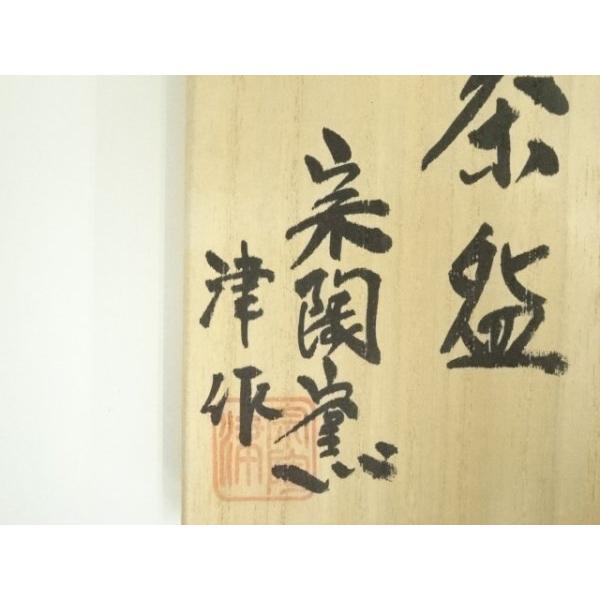 茶盌
宗陶窯
津作